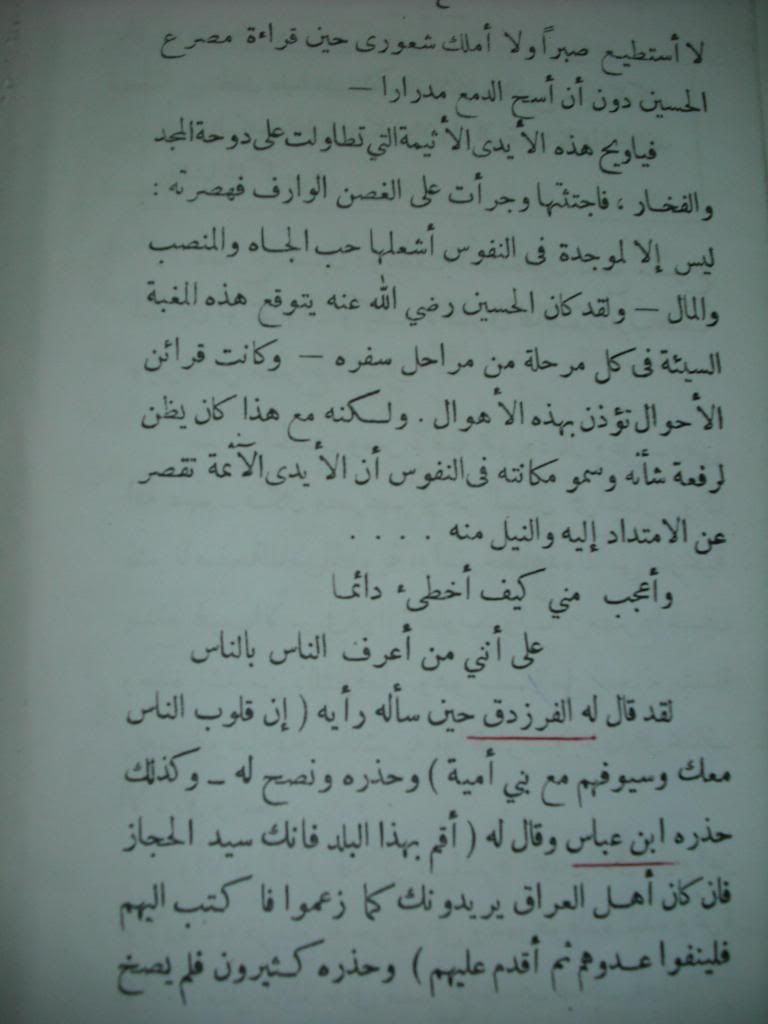 لا أستطيع صبراً ولا أملك شعورى حين قراءة مصرع
الحسين دون أن أسح الدمع مدرارا —
فياويح هذه الأيدى الأثيمة التي تطاولت على دوحة المجد
والفخار ، فاجتثتها وجرأت على الغصن الوارف فهصرته :
ليس إلا لموجدة فى النفوس أشعلها حب الجاه والمنصب
والمال — ولقد كان الحسين رضي الله عنه يتوقع هذه المغبة
السيئة فى كل مرحلة من مراحل سفره — وكانت قرائن
الأحوال تؤذن بهذه الأهوال . ولكنه مع هذا كان يظن
لرفعة شأنه وسمو مكانته فى النفوس أن الأيدى الآثمة تقصر
عن الامتداد إليه والنيل منه . . . .
وأعجب مني كيف أخطىء دائما
على أنني من أعرف الناس بالناس
لقد قال له الفرزدق حين سأله رأيه ( إن قلوب الناس
معك وسيوفهم مع بني أمية ) وحذره ونصح له ـ وكذلك
حذره ابن عباس وقال له ( أقم بهذا البلد فانك سيد الحجاز
فان كان أهل العراق يريدونك كما زعموا فا كتب اليهم
فلينفوا عدوهم ثم أقدم عليهم ) وحذره كثيرون فلم يصخ